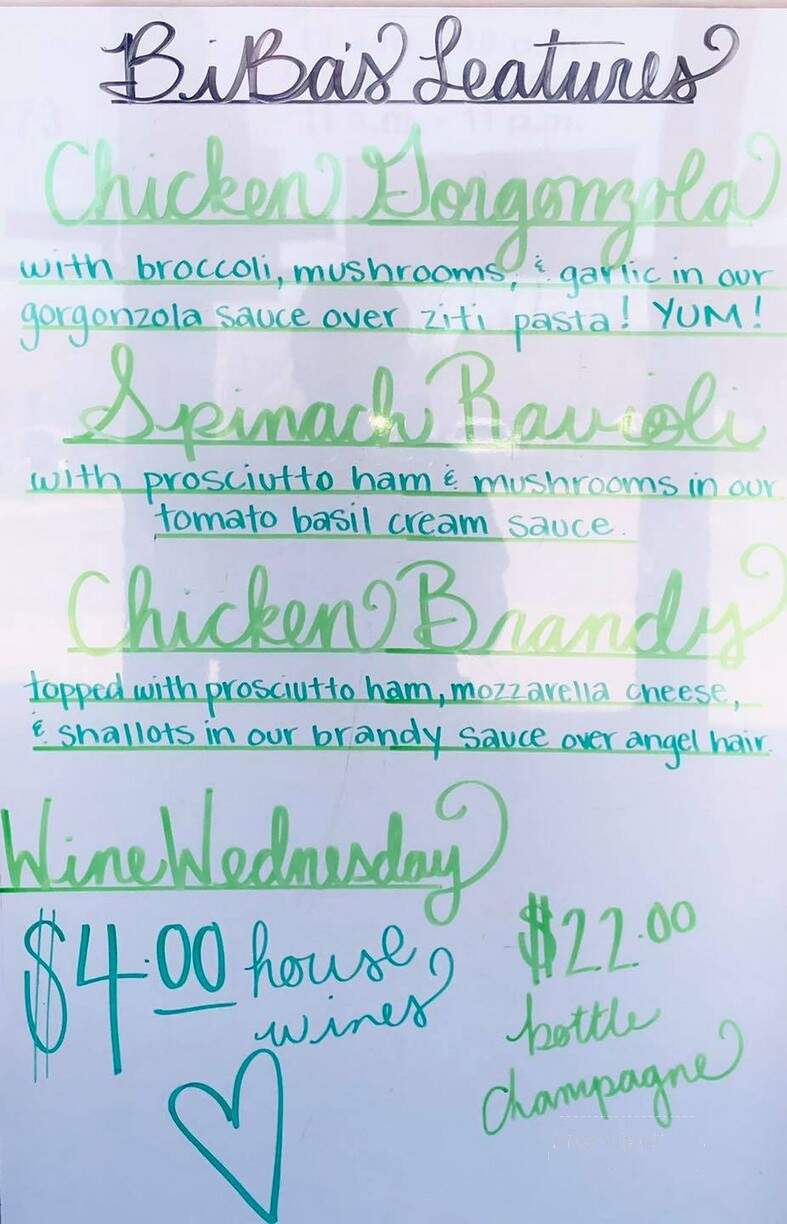 BiBa's Features
Chicken Gorgonzola
with broccoli, mushrooms, & garlic in our
gorgonzola sauce over ziti pasta! YUM!
Spinach Ravioli
with prosciutto ham & mushrooms in our
tomato basil cream sauce.
Chicken Brandy
topped with prosciutto ham, mozzarella cheese,
& shallots in our brandy sauce over angel hair.
Wine Wednesday
$4.00 house
wines
$22.00
bottle
champagne